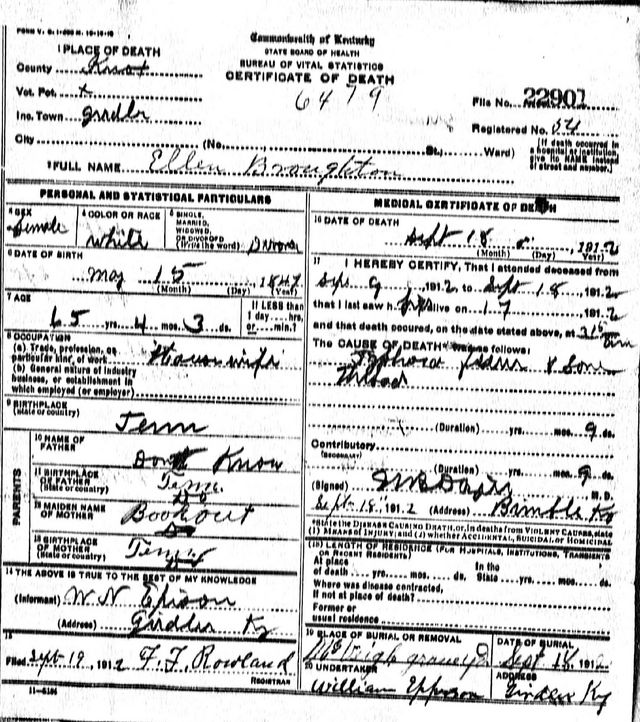 FORM V. S. 1-200 M. 10-10-10
Commonwealth of Kentucky
STATE BOARD OF HEALTH
BUREAU OF VITAL STATISTICS
CERTIFICATE OF DEATH
1 PLACE OF DEATH
County Knox
Vot. Pct. x
Inc. Town Girdler
City (No. St., Ward)
6479
File No. 22901
Registered No. 54
(If death occurred in a hospital or institution give its NAME instead of street and number.)
2 FULL NAME Ellen Broughton
PERSONAL AND STATISTICAL PARTICULARS
3 SEX Female
4 COLOR OR RACE White
5 SINGLE, MARRIED, WIDOWED, OR DIVORCED (Write the word)
6 DATE OF BIRTH
May 15, 1847
(Month) (Day) (Year)
7 AGE
65 yrs. 4 mos. 3 ds.
If LESS than 1 day....hrs. or....min.?
8 OCCUPATION
(a) Trade, profession, or particular kind of work Housewife
(b) General nature of industry business, or establishment in which employed (or employer)
9 BIRTHPLACE (State or country)
Tenn
PARENTS
10 NAME OF FATHER Dont Know
11 BIRTHPLACE OF FATHER (State or country) Tenn.
12 MAIDEN NAME OF MOTHER Bookout
13 BIRTHPLACE OF MOTHER (State or country) Tenn
14 THE ABOVE IS TRUE TO THE BEST OF MY KNOWLEDGE
(Informant) W N
(Address) Girdler Ky
15
Filed Sept 19, 1912 F. F. Rowland
REGISTRAR
11-5184
MEDICAL CERTIFICATE OF DEATH
16 DATE OF DEATH
Sept 18, 1912
(Month) (Day) (Year)
17 I HEREBY CERTIFY, That I attended deceased from
Sept 9, 1912, to Sept 18, 1912
that I last saw her alive on 17, 1912
and that death occured, on the date stated above, at m
The CAUSE OF DEATH was as follows:
& Sore
Throat
(Duration) yrs. mos. 9 ds.
Contributory
(SECONDARY)
(Duration) yrs. mos. 9 ds.
(Signed) M. D.
Sept 18, 1912 (Address) Bimble Ky
*State the DISEASE CAUSING DEATH, or, in deaths from VIOLENT CAUSES, state (1) MEANS OF INJURY; and (2) whether ACCIDENTAL, SUICIDAL or HOMICIDAL
18 LENGTH OF RESIDENCE (FOR HOSPITALS, INSTITUTIONS, TRANSIENTS OR RECENT RESIDENTS)
At place of death yrs. mos. ds. In the State yrs. mos. ds.
Where was disease contracted, if not at place of death?
Former or usual residence
19 PLACE OF BURIAL OR REMOVAL
DATE OF BURIAL
Sept 18, 1912
20 UNDERTAKER
William Epperson
ADDRESS
Girdler Ky